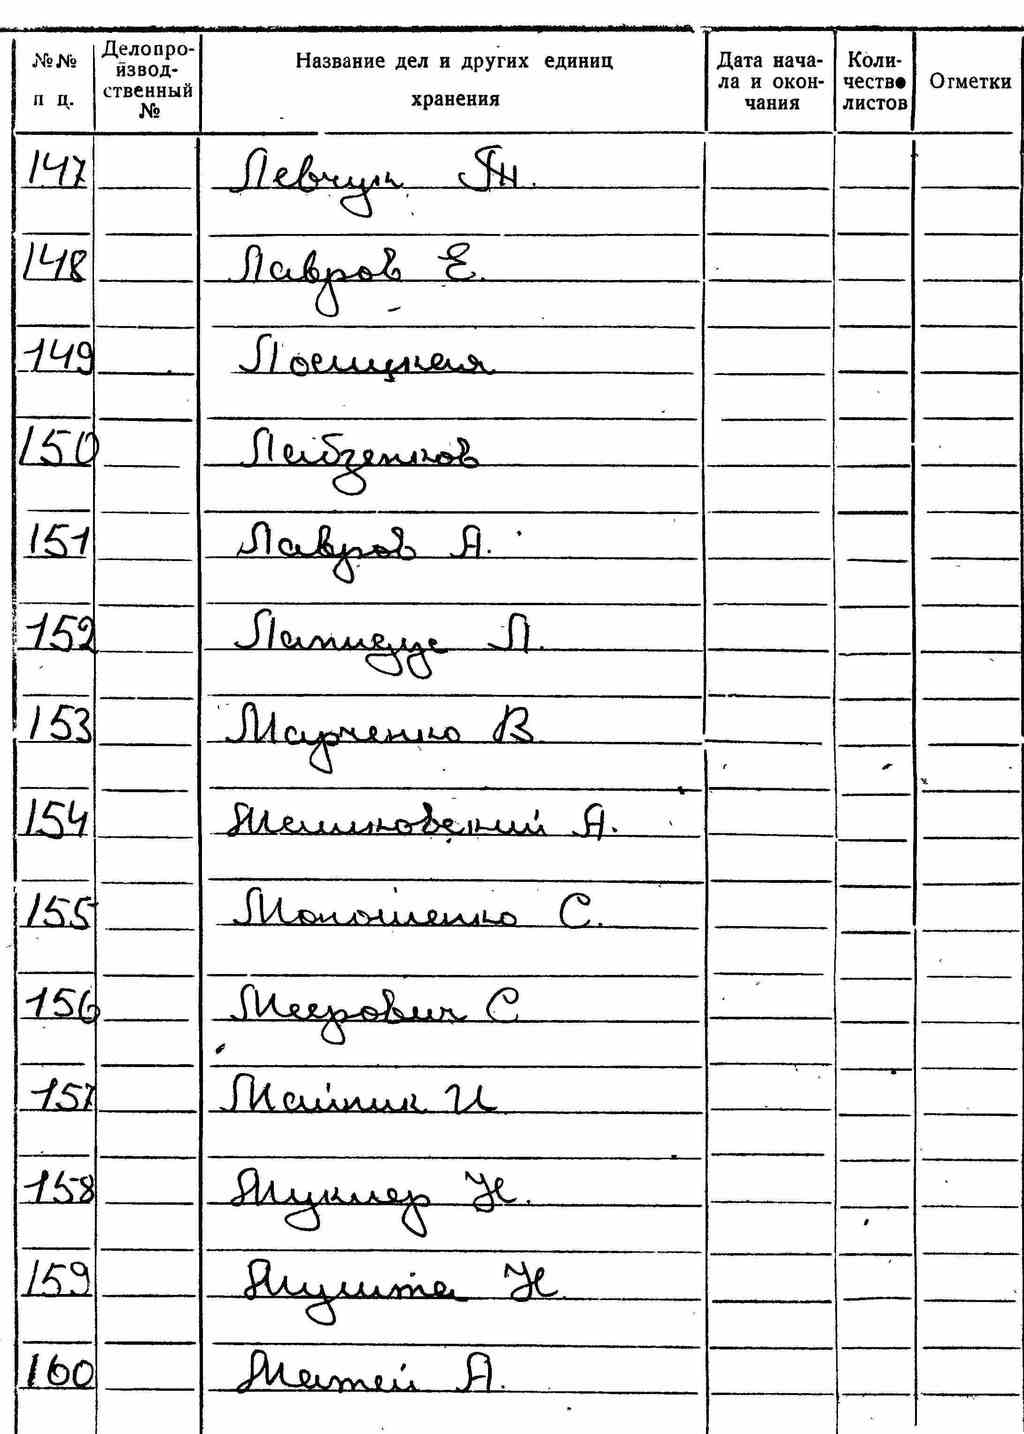 №№ п ц.
Делопроизводственный №
Название дел и других единиц хранения
Дата начала и окончания
Количество листов
Отметки
147 Левчук Тн.
148 Лавров Е.
149 Лосицкая
150 Лебзенков
151 Лавров А.
152 Лапидус Л.
153 Марченко В
154 Машковский А.
155 Молошенко С.
156 Меерович С
157 Майник И
158 Мукмер Н.
159 Мушта Н.
160 Матей А.